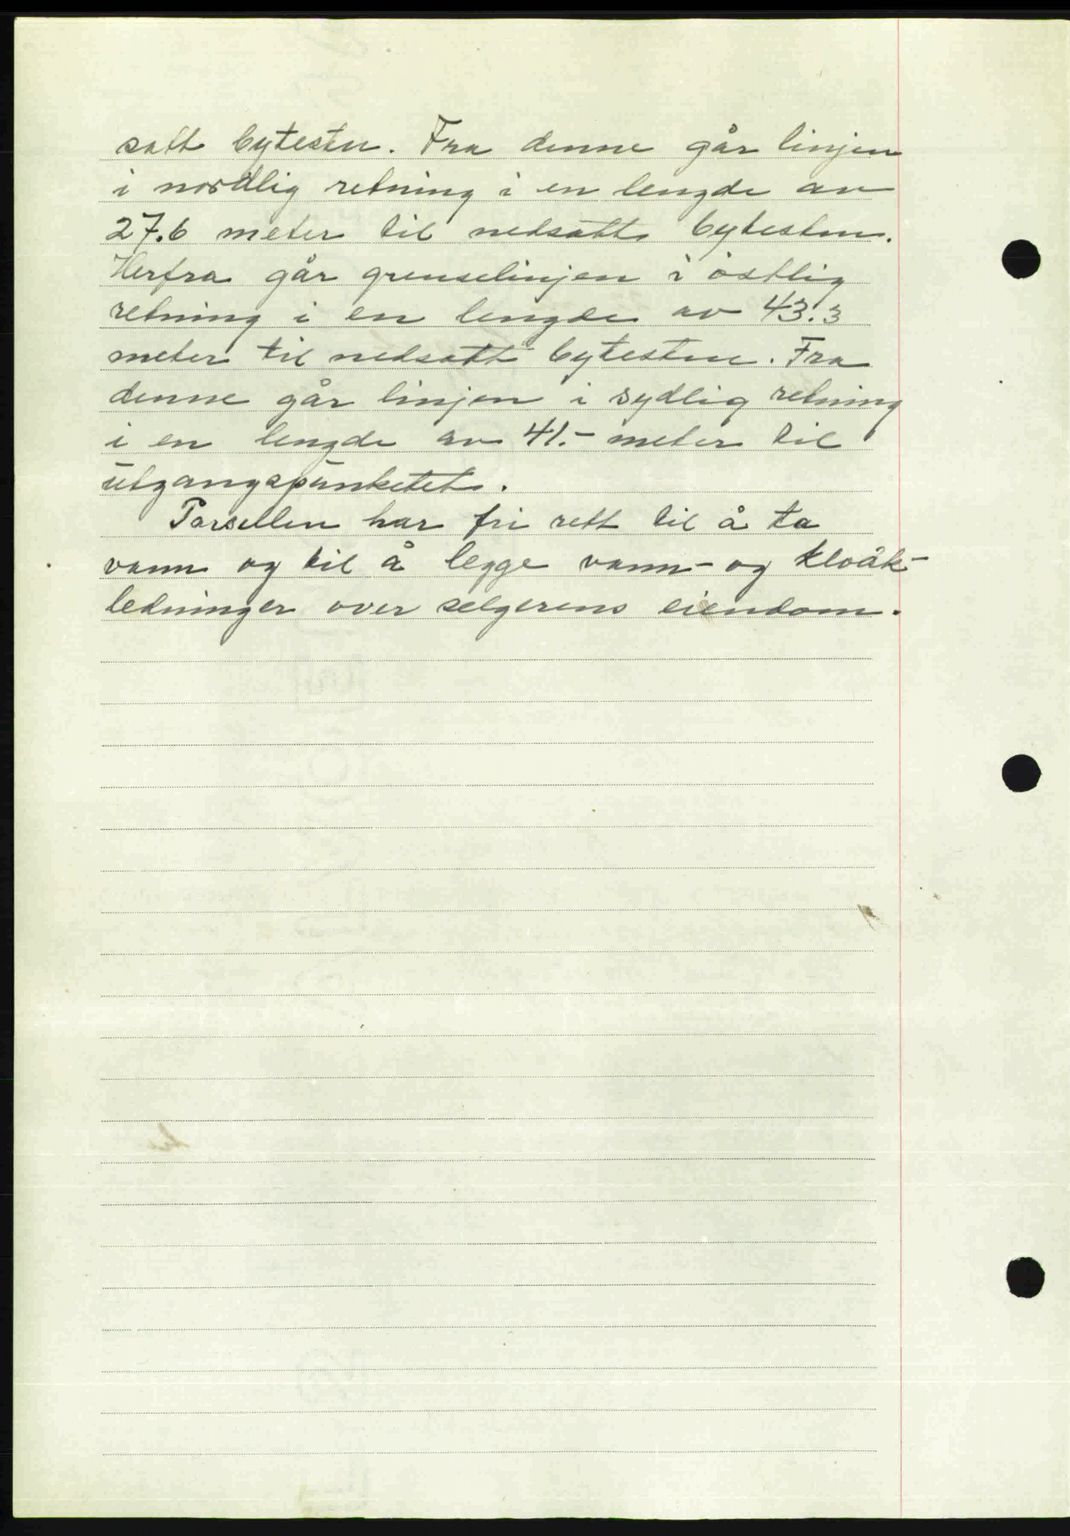 satt bytesten. Fra denne går linjen
i nordlig retning i en lengde av
27.6 meter til nedsatt bytesten.
Herfra går grenselinjen i östlig
retning i en lengde av 43.3
meter til nedsatt bytesten. Fra
denne går linjen i sydlig retning
i en lengde av 41.- meter til
utgangspunktet.
Parsellen har fri rett til å ta
vann og til å legge vann- og kloåk-
ledninger over selgerens eiendom.